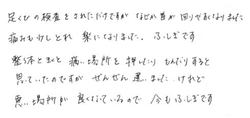 足くびの検査をされただけですが なぜか首が回りやすくなりました
痛みも少しとれ 楽になりました。ふしぎです
整体と言うと 痛い場所を 押したり もんだりすると
思っていたのですが ぜんぜん 違いました けれど
悪い場所が 良くなっているので 今も ふしぎです